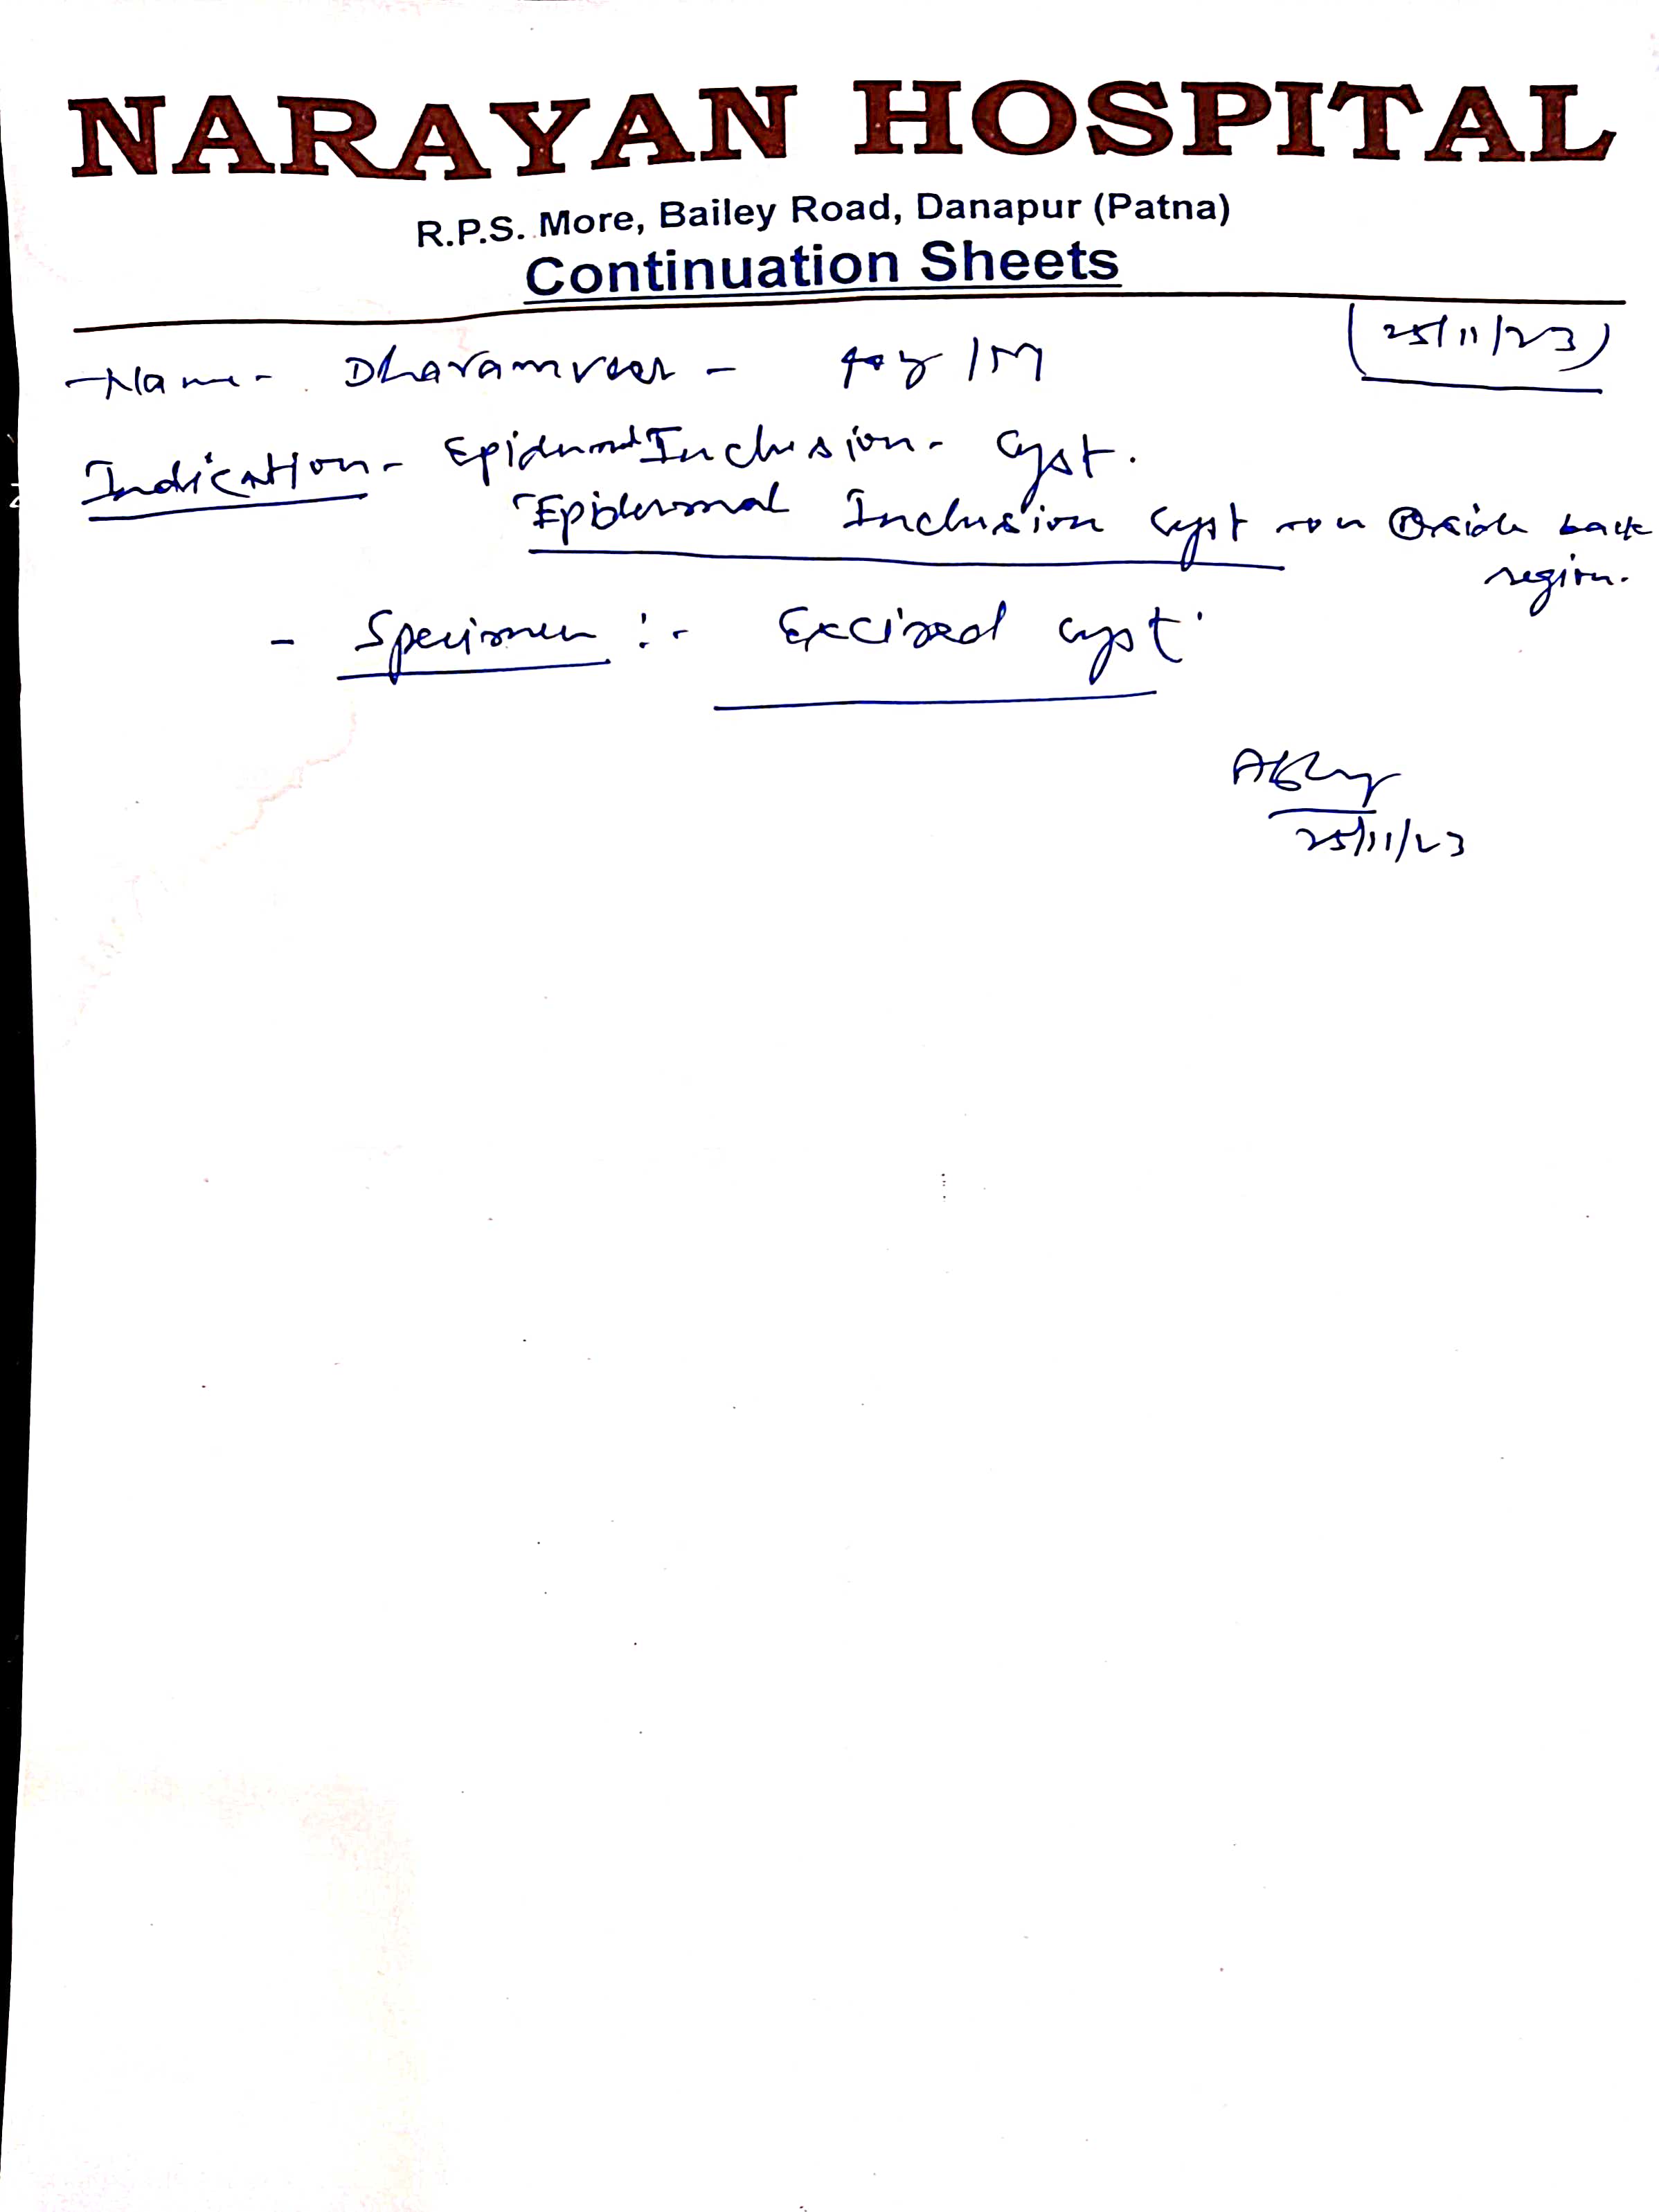 NARAYAN HOSPITAL
R.P.S. More, Bailey Road, Danapur (Patna)
Continuation Sheets
(25/11/23)
Name - Dharamveer - 40y/M
Indication - Epidermal Inclusion - cyst.
Epidermal Inclusion cyst on Ⓡ side back
region.
- Specimen :- Excised cyst.
25/11/23